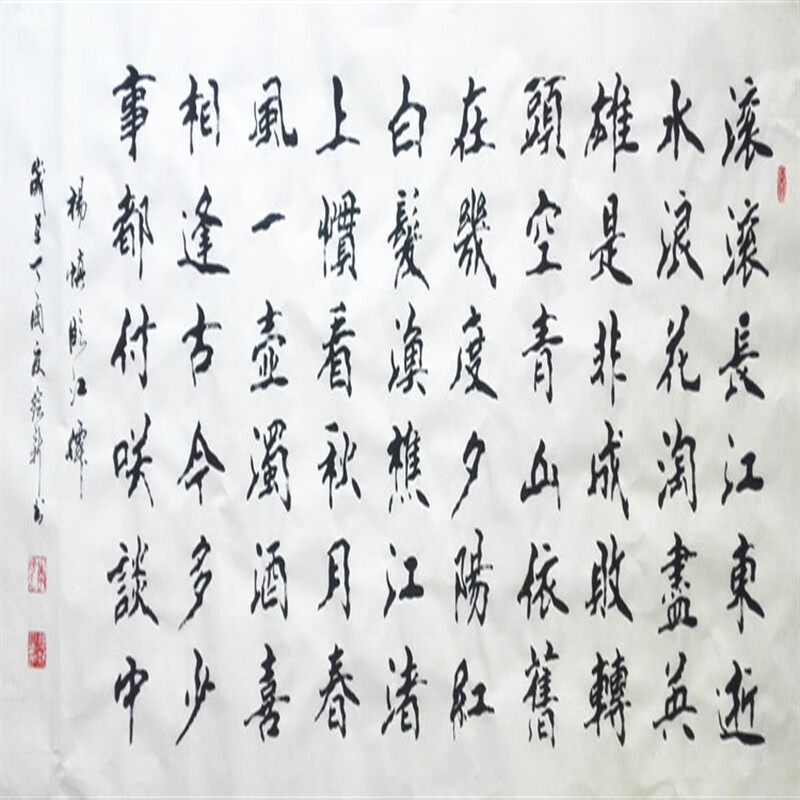 滚滚長江東逝
水浪花淘盡英
雄是非成敗轉
頭空青山依舊
在幾度夕陽紅
白髮漁樵江渚
上慣看秋月春
風一壺濁酒喜
相逢古今多少
事都付咲談中
楊慎臨江
歲
丁酉夏
書